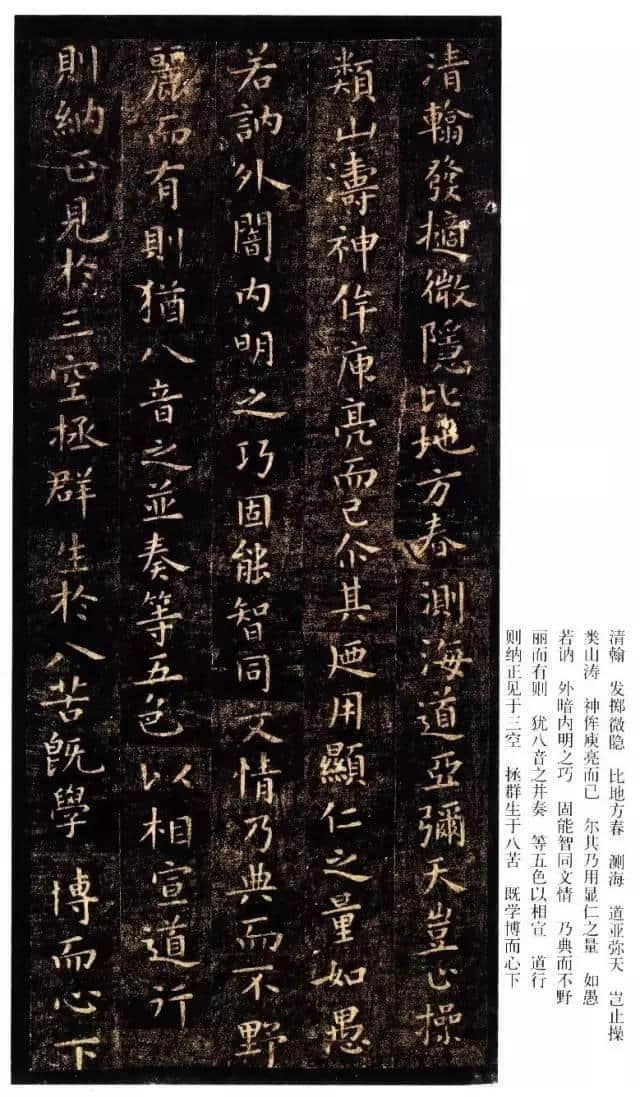 清翰發擿微隱比地方春測海道亞彌天豈止操
類山濤神侔庾亮而已尒其迺用顯仁之量如愚
若訥外闇內明之巧固能智同文情乃典而不野
麗而有則猶八音之並奏等五色以相宣道行
則納正見於三空拯群生於八苦既學博而心下
清翰　发掷微隐　比地方春　测海　道亚弥天　岂止操
类山涛　神侔庾亮而已　尔其乃用显仁之量　如愚
若讷　外暗内明之巧　固能智同文情　乃典而不野
丽而有则　犹八音之并奏　等五色以相宣　道行
则纳正见于三空　拯群生于八苦　既学博而心下